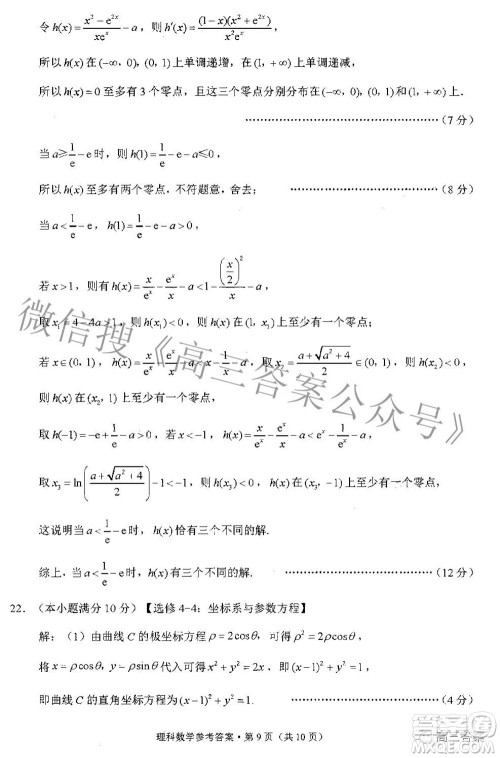 令 h(x)=\frac{x^2-e^{2x}}{xe^x}-a，则 h′(x)=\frac{(1-x)(x^2+e^{2x})}{x^2e^x}，
所以 h(x) 在 (-∞, 0)，(0, 1) 上单调递增，在 (1, +∞) 上单调递减，
所以 h(x)=0 至多有 3 个零点，且这三个零点分别分布在 (-∞, 0)，(0, 1)，(1, +∞) 上．
……………………………………（7 分）
当 a≥\frac{1}{e}-e 时，则 h(1)=\frac{1}{e}-e-a≤0，
所以 h(x) 至多有两个零点，不符题意，舍去；……………………（8 分）
当 a<\frac{1}{e}-e，h(1)=\frac{1}{e}-e-a>0，
若 x>1，则有 h(x)=\frac{x}{e^x}-\frac{e^x}{x}-a<1-\frac{(\frac{x}{2})^2}{x}-a，
取 x_1=4-4a>1，则 h(x_1)<0，在 (1, x_1) 上至少有一个零点；
若 x∈(0, 1)，h(x)=\frac{x}{e^x}-\frac{e^x}{x}-a<x-\frac{1}{x}-a，取 x_2=\frac{a+\sqrt{a^2+4}}{2}∈(0, 1)，则 h(x_2)<0，
则在 (x_2, 1) 上至少有一个零点，
取 h(-1)=-e+\frac{1}{e}-a>0，若 x<-1，h(x)=\frac{x}{e^x}-\frac{e^x}{x}-a<e^x-\frac{1}{e^x}-a，
取 x_3=\ln(\frac{a+\sqrt{a^2+4}}{2})-1<-1，则有 h(x_3)<0，在 (x_3, -1) 上至少有一个零点，
这说明当 a<\frac{1}{e}-e 时，h(x) 恰有三个不同的解．
综上，当 a<\frac{1}{e}-e 时，h(x) 有三个不同的解．……………………（12 分）
22．（本小题满分 10 分）【选修 4-4：坐标系与参数方程】
解：（1）由曲线 C 的极坐标方程 ρ=2cosθ，可得 ρ^2=2ρcosθ，
将 x=ρcosθ，y=ρsinθ 代入可得 x^2+y^2=2x，即 (x-1)^2+y^2=1，
即曲线 C 的直角坐标方程为 (x-1)^2+y^2=1．……………………（4 分）
理科数学参考答案·第 9 页（共 10 页）
微信搜《高三答案公众号》
高三答案